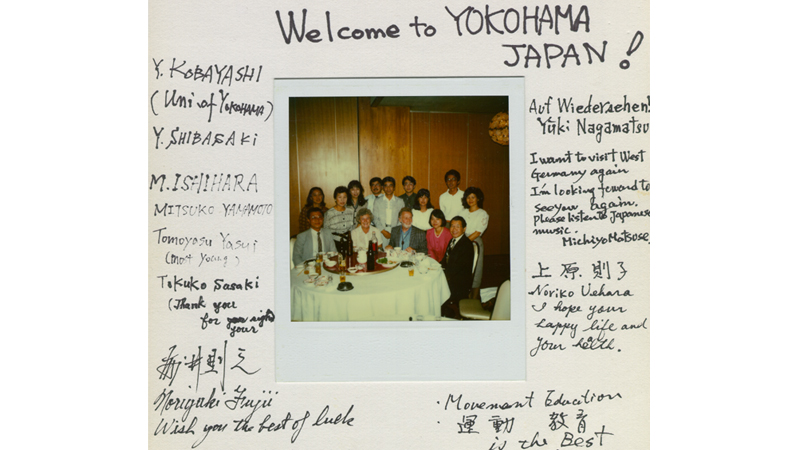 Welcome to YOKOHAMA
JAPAN!
Y. KOBAYASHI
(Uni. of YOKOHAMA)
Y. SHIBASAKI
M. ISHIHARA
MITSUKO YAMAMOTO
Tomoyasu Yasui
Tokuko Sasaki
(Thank you
for your
your
Noriyuki Fujii
Wish you the best of luck
Auf Wiedersehen!
Yuki Nagamatsu
I want to visit West
Germany again
I'm looking foward to
see you again.
please listen to Japanese
music.
Michiyo Matsuse
上原則子
Noriko Uehara
I hope your
happy life and
your helth.
・Movement Education
・運動 教育
is the Best